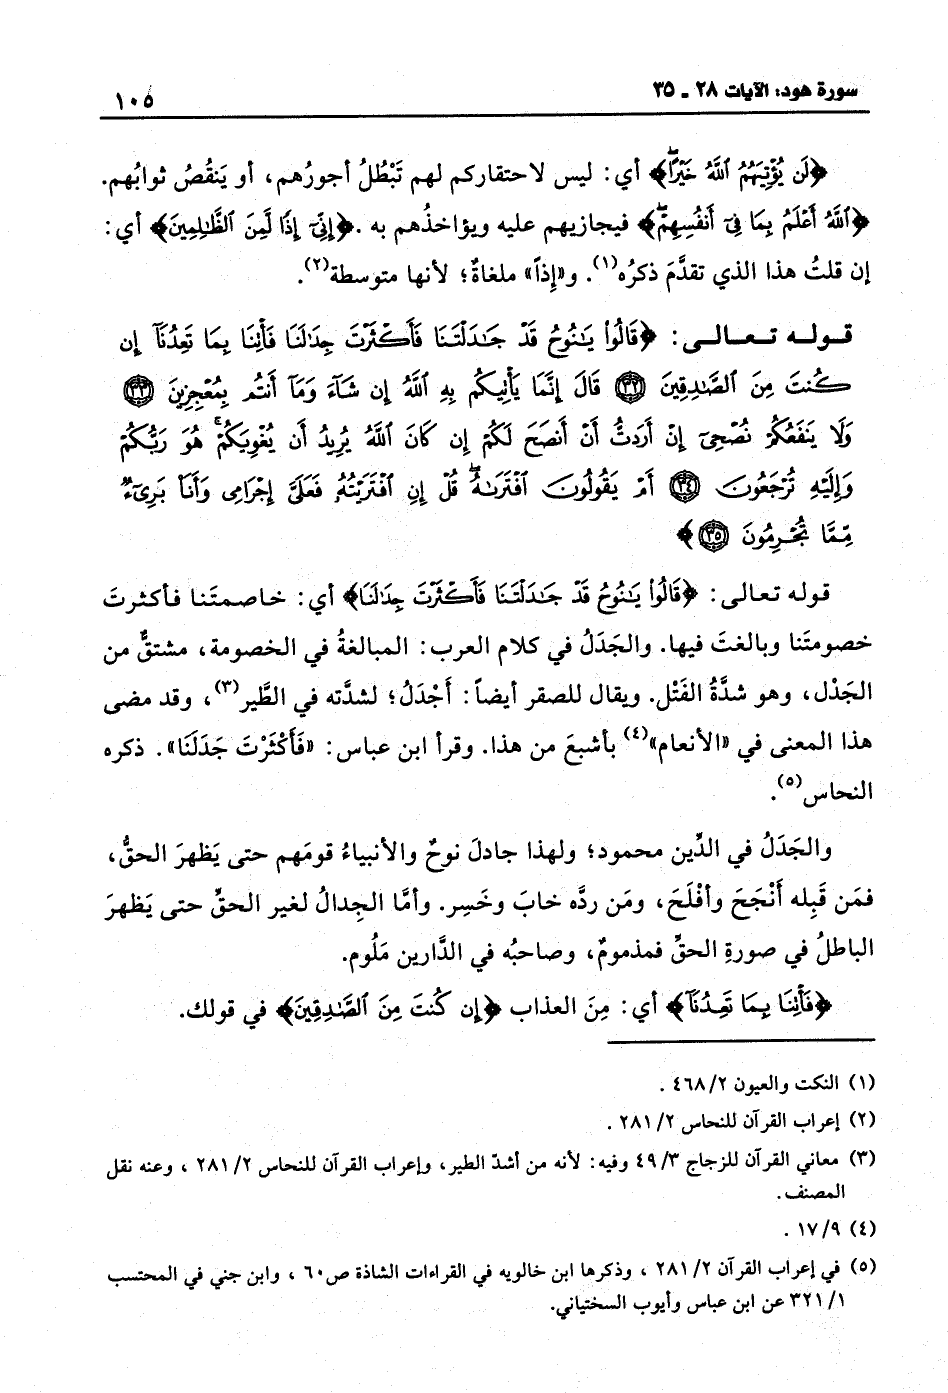 سورة هود: الآيات ٢٨ ـ ٣٥
١٠٥
﴿لَن يُؤْتِيَهُمُ ٱللَّهُ خَيْرًاۖ﴾ أي: ليس لاحتقاركم لهم تَبْطُلُ أجورُهم، أو يَنقُصُ ثوابُهم.
﴿ٱللَّهُ أَعْلَمُ بِمَا فِىٓ أَنفُسِهِمْۖ﴾ فيجازيهم عليه ويؤاخذُهم به .﴿إِنِّىٓ إِذًا لَّمِنَ ٱلظَّـٰلِمِينَ﴾ أي:
إن قلتُ هذا الذي تقدَّمَ ذكرُه(١). و«إِذاً» ملغاةٌ؛ لأنها متوسطة(٢).
قوله تعالى: ﴿قَالُوا۟ يَـٰنُوحُ قَدْ جَـٰدَلْتَنَا فَأَكْثَرْتَ جِدَٰلَنَا فَأْتِنَا بِمَا تَعِدُنَآ إِن
كُنتَ مِنَ ٱلصَّـٰدِقِينَ ٣٢ قَالَ إِنَّمَا يَأْتِيكُم بِهِ ٱللَّهُ إِن شَآءَ وَمَآ أَنتُم بِمُعْجِزِينَ ٣٣
وَلَا يَنفَعُكُمْ نُصْحِىٓ إِنْ أَرَدتُّ أَنْ أَنصَحَ لَكُمْ إِن كَانَ ٱللَّهُ يُرِيدُ أَن يُغْوِيَكُمْۚ هُوَ رَبُّكُمْ
وَإِلَيْهِ تُرْجَعُونَ ٣٤ أَمْ يَقُولُونَ ٱفْتَرَىٰهُۖ قُلْ إِنِ ٱفْتَرَيْتُهُۥ فَعَلَىَّ إِجْرَامِى وَأَنَا۠ بَرِىٓءٌ
مِّمَّا تُجْرِمُونَ ٣٥﴾
قوله تعالى: ﴿قَالُوا۟ يَـٰنُوحُ قَدْ جَـٰدَلْتَنَا فَأَكْثَرْتَ جِدَٰلَنَا﴾ أي: خاصمتَنا فأكثرتَ
خصومتَنا وبالغتَ فيها. والجَدَلُ في كلام العرب: المبالغةُ في الخصومة، مشتقٌّ من
الجَدْل، وهو شدَّةُ الفَتْل. ويقال للصقر أيضاً: أَجْدَلُ؛ لشدَّته في الطَّير(٣)، وقد مضى
هذا المعنى في «الأنعام»(٤) بأشبعَ من هذا. وقرأ ابن عباس: «فَأَكْثَرْتَ جَدَلَنَا». ذكره
النحاس(٥).
والجَدَلُ في الدِّين محمود؛ ولهذا جادلَ نوحٌ والأنبياءُ قومَهم حتى يَظهرَ الحقُّ،
فمَن قَبِله أَنْجَحَ وأَفْلَحَ، ومَن ردَّه خابَ وخَسِر. وأمَّا الجِدالُ لغير الحقِّ حتى يَظهرَ
الباطلُ في صورةِ الحقِّ فمذمومٌ، وصاحبُه في الدَّارين مَلُوم.
﴿فَأْتِنَا بِمَا تَعِدُنَآ﴾ أي: مِنَ العذاب ﴿إِن كُنتَ مِنَ ٱلصَّـٰدِقِينَ﴾ في قولك.
(١) النكت والعيون ٤٦٨/٢ .
(٢) إعراب القرآن للنحاس ٢٨١/٢ .
(٣) معاني القرآن للزجاج ٤٩/٣ وفيه: لأنه من أشدّ الطير، وإعراب القرآن للنحاس ٢٨١/٢ ، وعنه نقل
المصنف.
(٤) ١٧/٩ .
(٥) في إعراب القرآن ٢٨١/٢ ، وذكرها ابن خالويه في القراءات الشاذة ص٦٠ ، وابن جني في المحتسب
٣٢١/١ عن ابن عباس وأيوب السختياني.